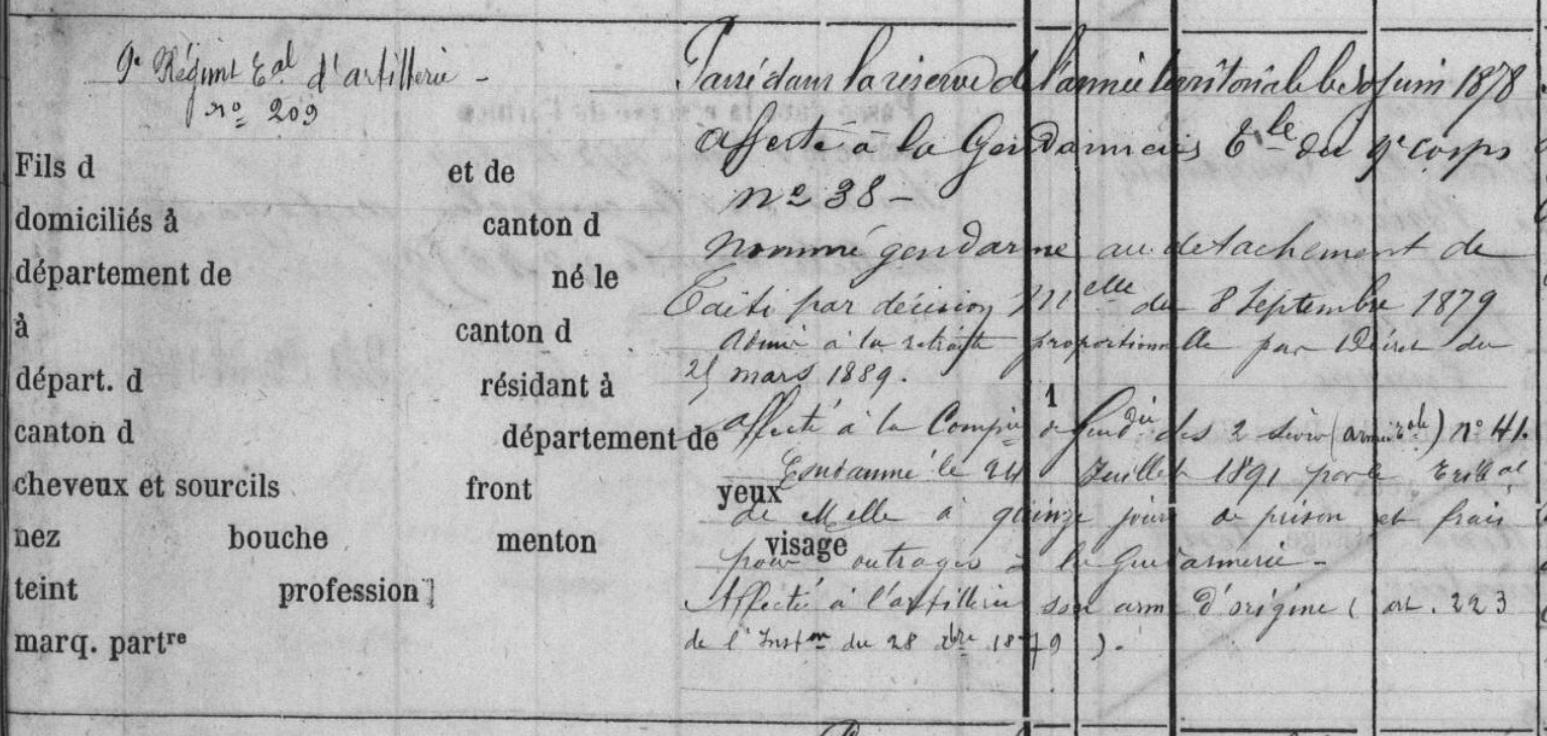 9e Régimt Eal d'artillerie -
no 209
Fils d et de
domiciliés à canton d
département de né le
à canton d
départ. d résidant à
canton d département de
cheveux et sourcils front yeux
nez bouche menton visage
teint profession
marq. partre
Passé dans la réserve de l'armée territoriale le 30 Juin 1878
affecté à la Gendarmerie Ele du 9e corps
no 38 -
nommé gendarme au détachement de
Taïti par décision Mlle du 8 Septembre 1879
Admis à la retraite proportionnelle par Décret du
25 mars 1889.
1
affecté à la Compie de Gendie des 2 Sèvres (armée tale) no 41.
Condamné le 24 Juillet 1891 par le Tribal
de Melle à quinze jours de prison et frais
pour outrages à la Gendarmerie -
Affecté à l'artillerie son arme d'origine (art. 223
de l'Inston du 28 Xbre 1879).